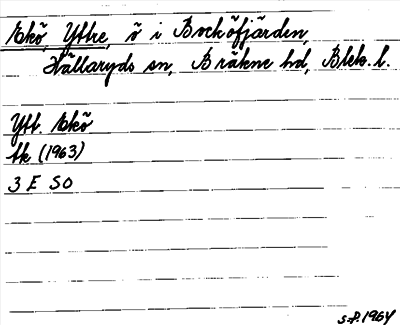 Ekö, Yttre, ö i Bocköfjärden,
Hällaryds sn, Bräkne hd, Blek. l.
Ytt. Ekö
tk (1963)
3 E SO
S.P. 1964